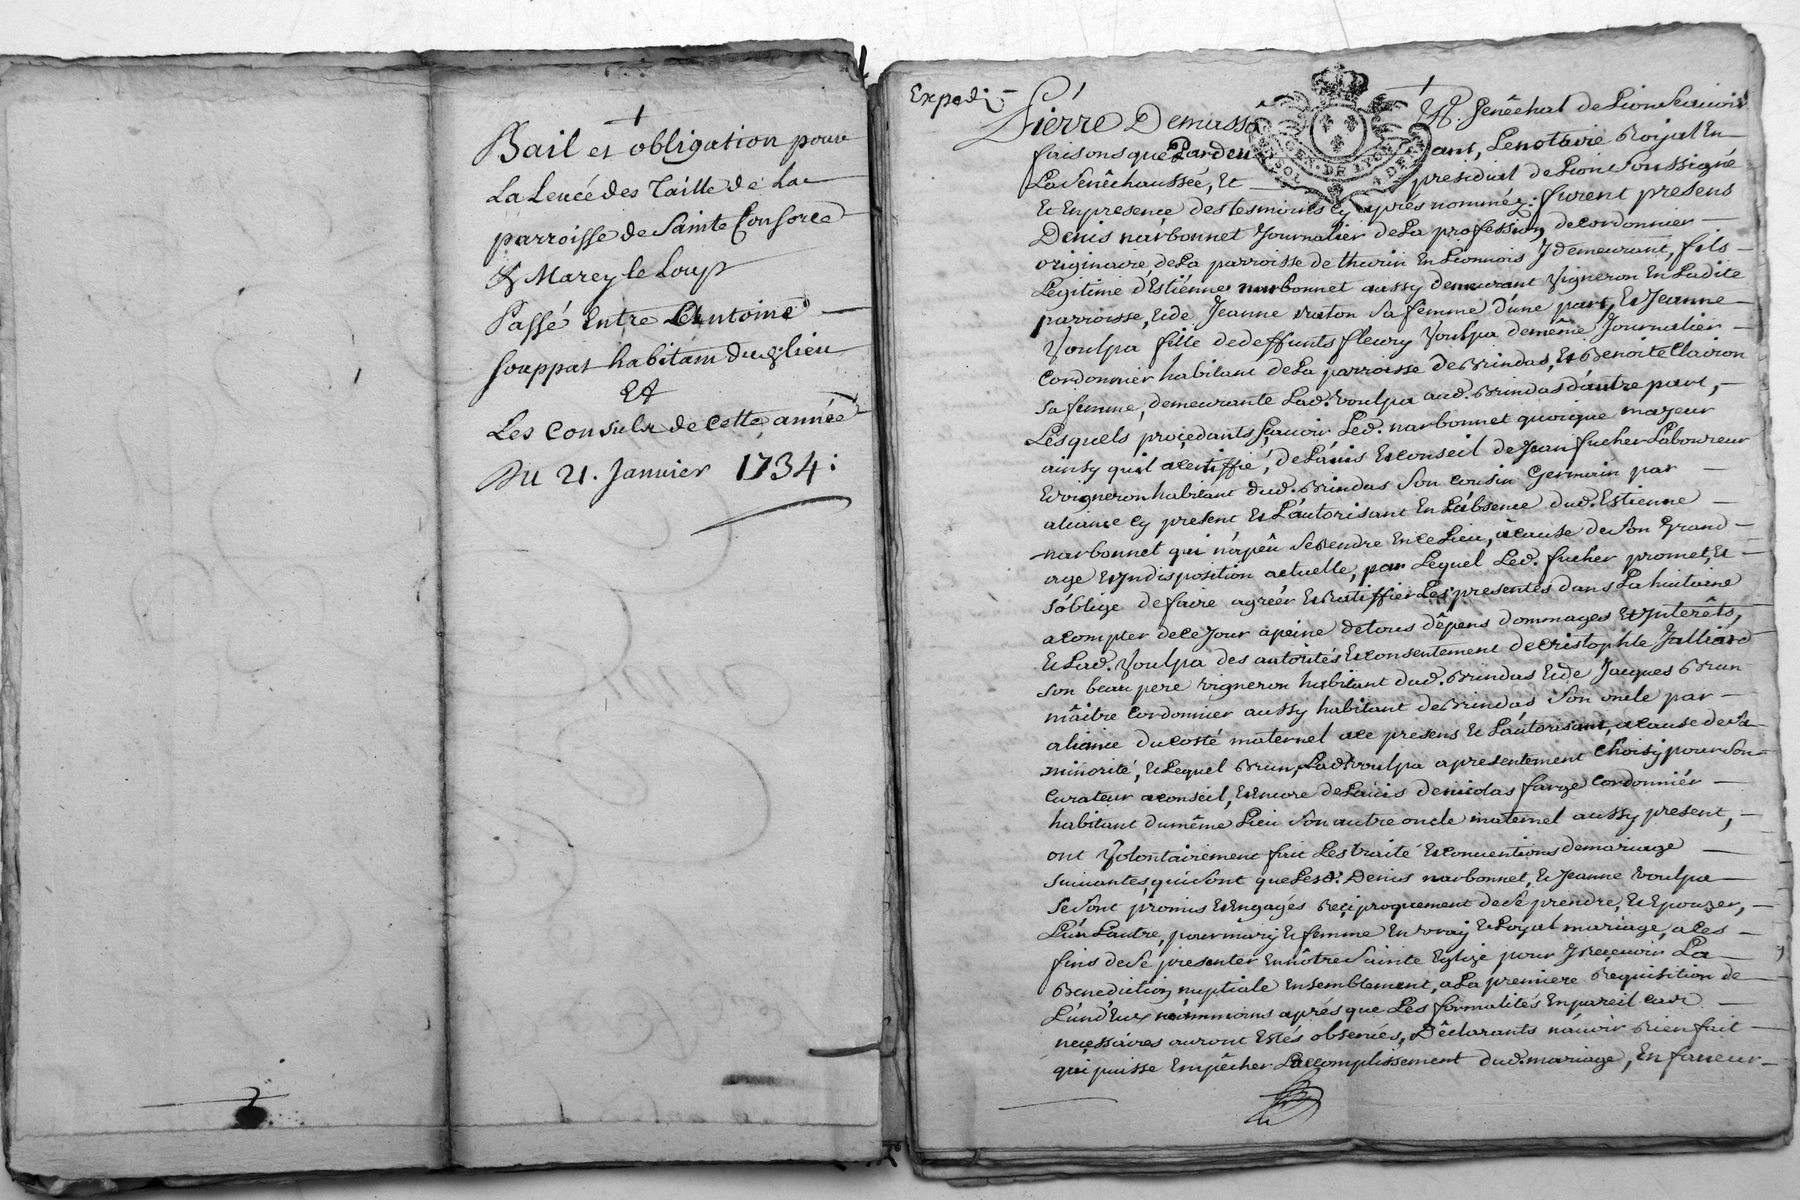 Bail et obligation pour
La Leveé des Taille de La
parroisse de Sainte Consorce
& Marcy le Loup
Passé Entre Antoine
Souppat habitant dud. lieu
Et
Les Consuls de cette année
Du 21. Janvier 1734:
Expedié
Pierre Demasso Senêchal de Lion Scavoir
faisons que Pardevant, Le notaire Royal En
La Senêchaussée, et presidial de Lion Soussigné
Et En presence des tesmoins cy aprés nommez: furent presens
Denis narbonnet Journalier de La profession de cordonnier
originaire de La parroisse de thurin En Lionnois Y demeurant, fils
Legitime d'Estienne narbonnet aussy demeurant Vigneron En Ladite
parroisse, et de Jeanne raton Sa femme d'une part, Et Jeanne
Voulpa fille de deffunts fleury Voulpa de même Journalier
Cordonnier habitant de La parroisse de Brindas, et Benoite Clairon
Sa femme, demeurante Lad. Voulpa aud. Brindas d'autre part,
Lesquels proçedants sçavoir Led. narbonnet quoique majeur
ainsy quil a certiffié, de L'avis Et conseil de Jean fucher Laboureur
Et vigneron habitant dud. Brindas Son cousin Germain par
aliance cy present et L'autorisant En L'absence dud. Estienne
narbonnet qui n'a peû Se Rendre En ce Lieu, a cause de Son Grand
age et Indisposition actuelle, par Lequel Led. fucher promet, et
s'oblige de faire agréer Et Ratiffier Les presentes dans La huitaine
a compter de ce Jour a peine de tous dêpens dommages et Interêts,
Et Lad. Voulpa des autorités Et consentement de Cristophle Jalliard
Son beau pere vigneron habitant dud. Brindas Et de Jacques Brun
mâitre Cordonnier aussy habitant de Brindas Son oncle par
aliance du costé maternel a ce presens et L'autorisant, a cause de Sa
minorité, et Lequel Brun, Lad. Voulpa a presentement choisy pour Son
Curateur a conseil, et Encore de L'avis de nicolas farge Cordonniér
habitant du même Lieu Son autre oncle maternel aussy present,
ont Volontairement fait Les traité Et conventions de mariage
Suivantes, qui Sont que Lesd. Denis narbonnet, et Jeanne Voulpa
Se Sont promis et Engagés Reciproquement de Se prendre, et Epouzer,
L'un L'autre, pour mary Et femme En vray et Loyal mariage, a Ces
fins de Se presenter En nôtre Sainte Eglize pour Y Recevoir La
Benediction nuptiale Ensemblement, a La premiere Requisition de
L'un d'eux néammoins aprés que Les formalités En pareil cas
neçessaires auront Estés observées, Dêclarants n'avoir Rien fait
qui puisse Empêcher L'accomplissement dud. mariage, En faveur